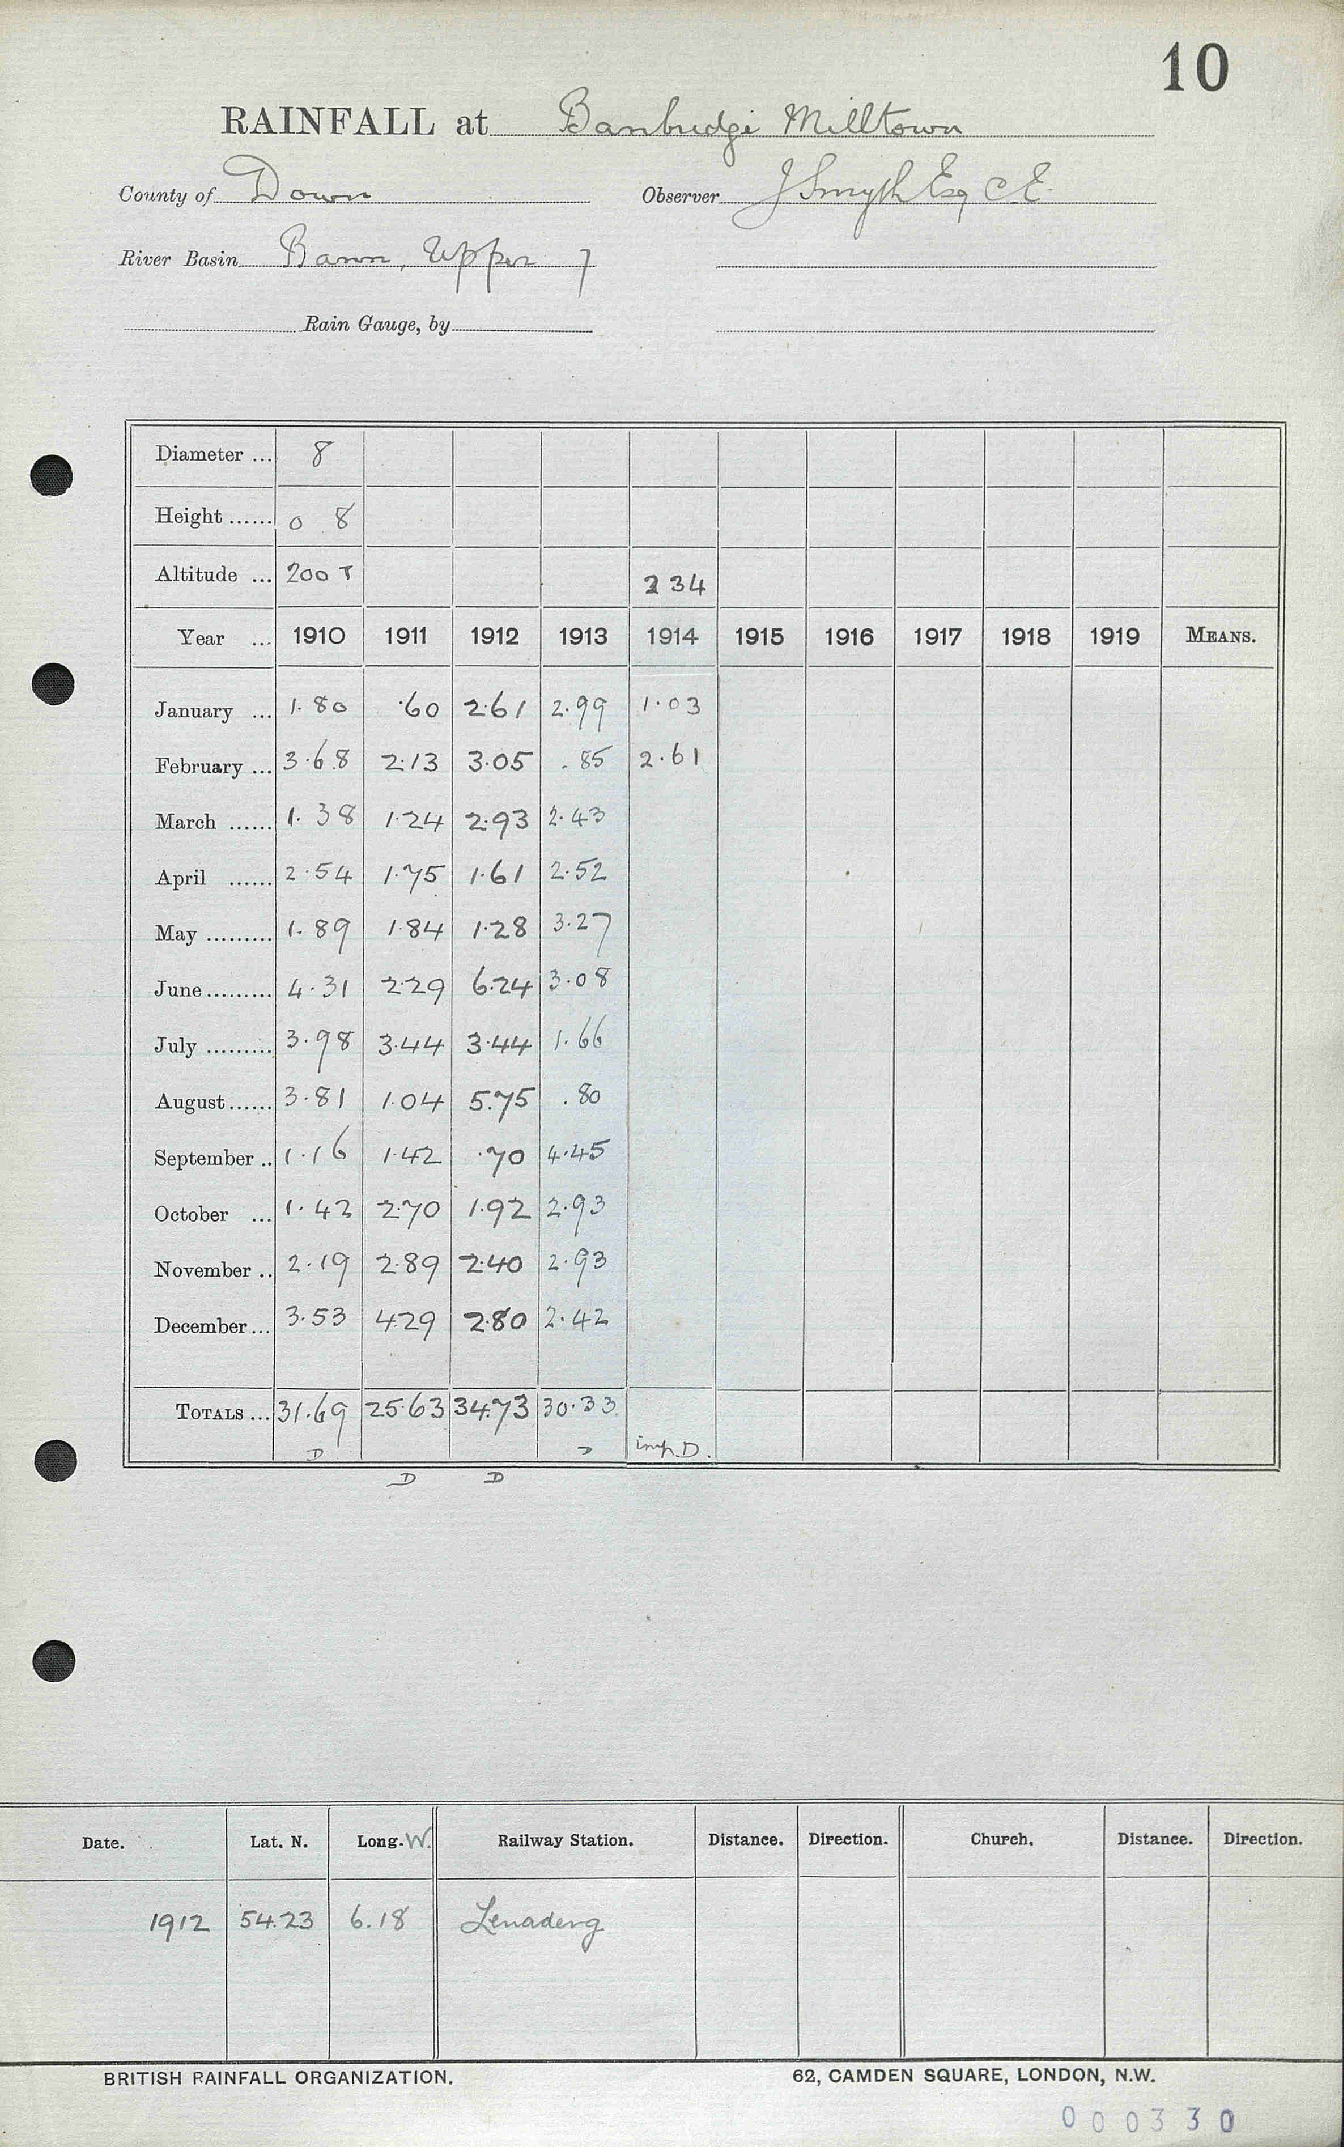 10
RAINFALL at Banbridge Milltown
County of Down Observer J Smyth Esq C E
River Basin Bann, Upper 7
Rain Gauge, by
Diameter ... 8
Height ...... 0 8
Altitude ... 200 T 234
Year ... 1910 1911 1912 1913 1914 1915 1916 1917 1918 1919 MEANS.
January ... 1.80 .60 2.61 2.99 1.03
February ... 3.68 2.13 3.05 .85 2.61
March ...... 1.38 1.24 2.93 2.43
April ...... 2.54 1.75 1.61 2.52
May ......... 1.89 1.84 1.28 3.27
June ......... 4.31 2.29 6.24 3.08
July ......... 3.98 3.44 3.44 1.66
August ...... 3.81 1.04 5.75 .80
September .. 1.16 1.42 .70 4.45
October ... 1.42 2.70 1.92 2.93
November .. 2.19 2.89 2.40 2.93
December ... 3.53 4.29 2.80 2.42
TOTALS ... 31.69 25.63 34.73 30.33
D D imp. D.
D D
Date. Lat. N. Long. W. Railway Station. Distance. Direction. Church. Distance. Direction.
1912 54.23 6.18 Lenaderg
BRITISH RAINFALL ORGANIZATION. 62, CAMDEN SQUARE, LONDON, N.W.
000330